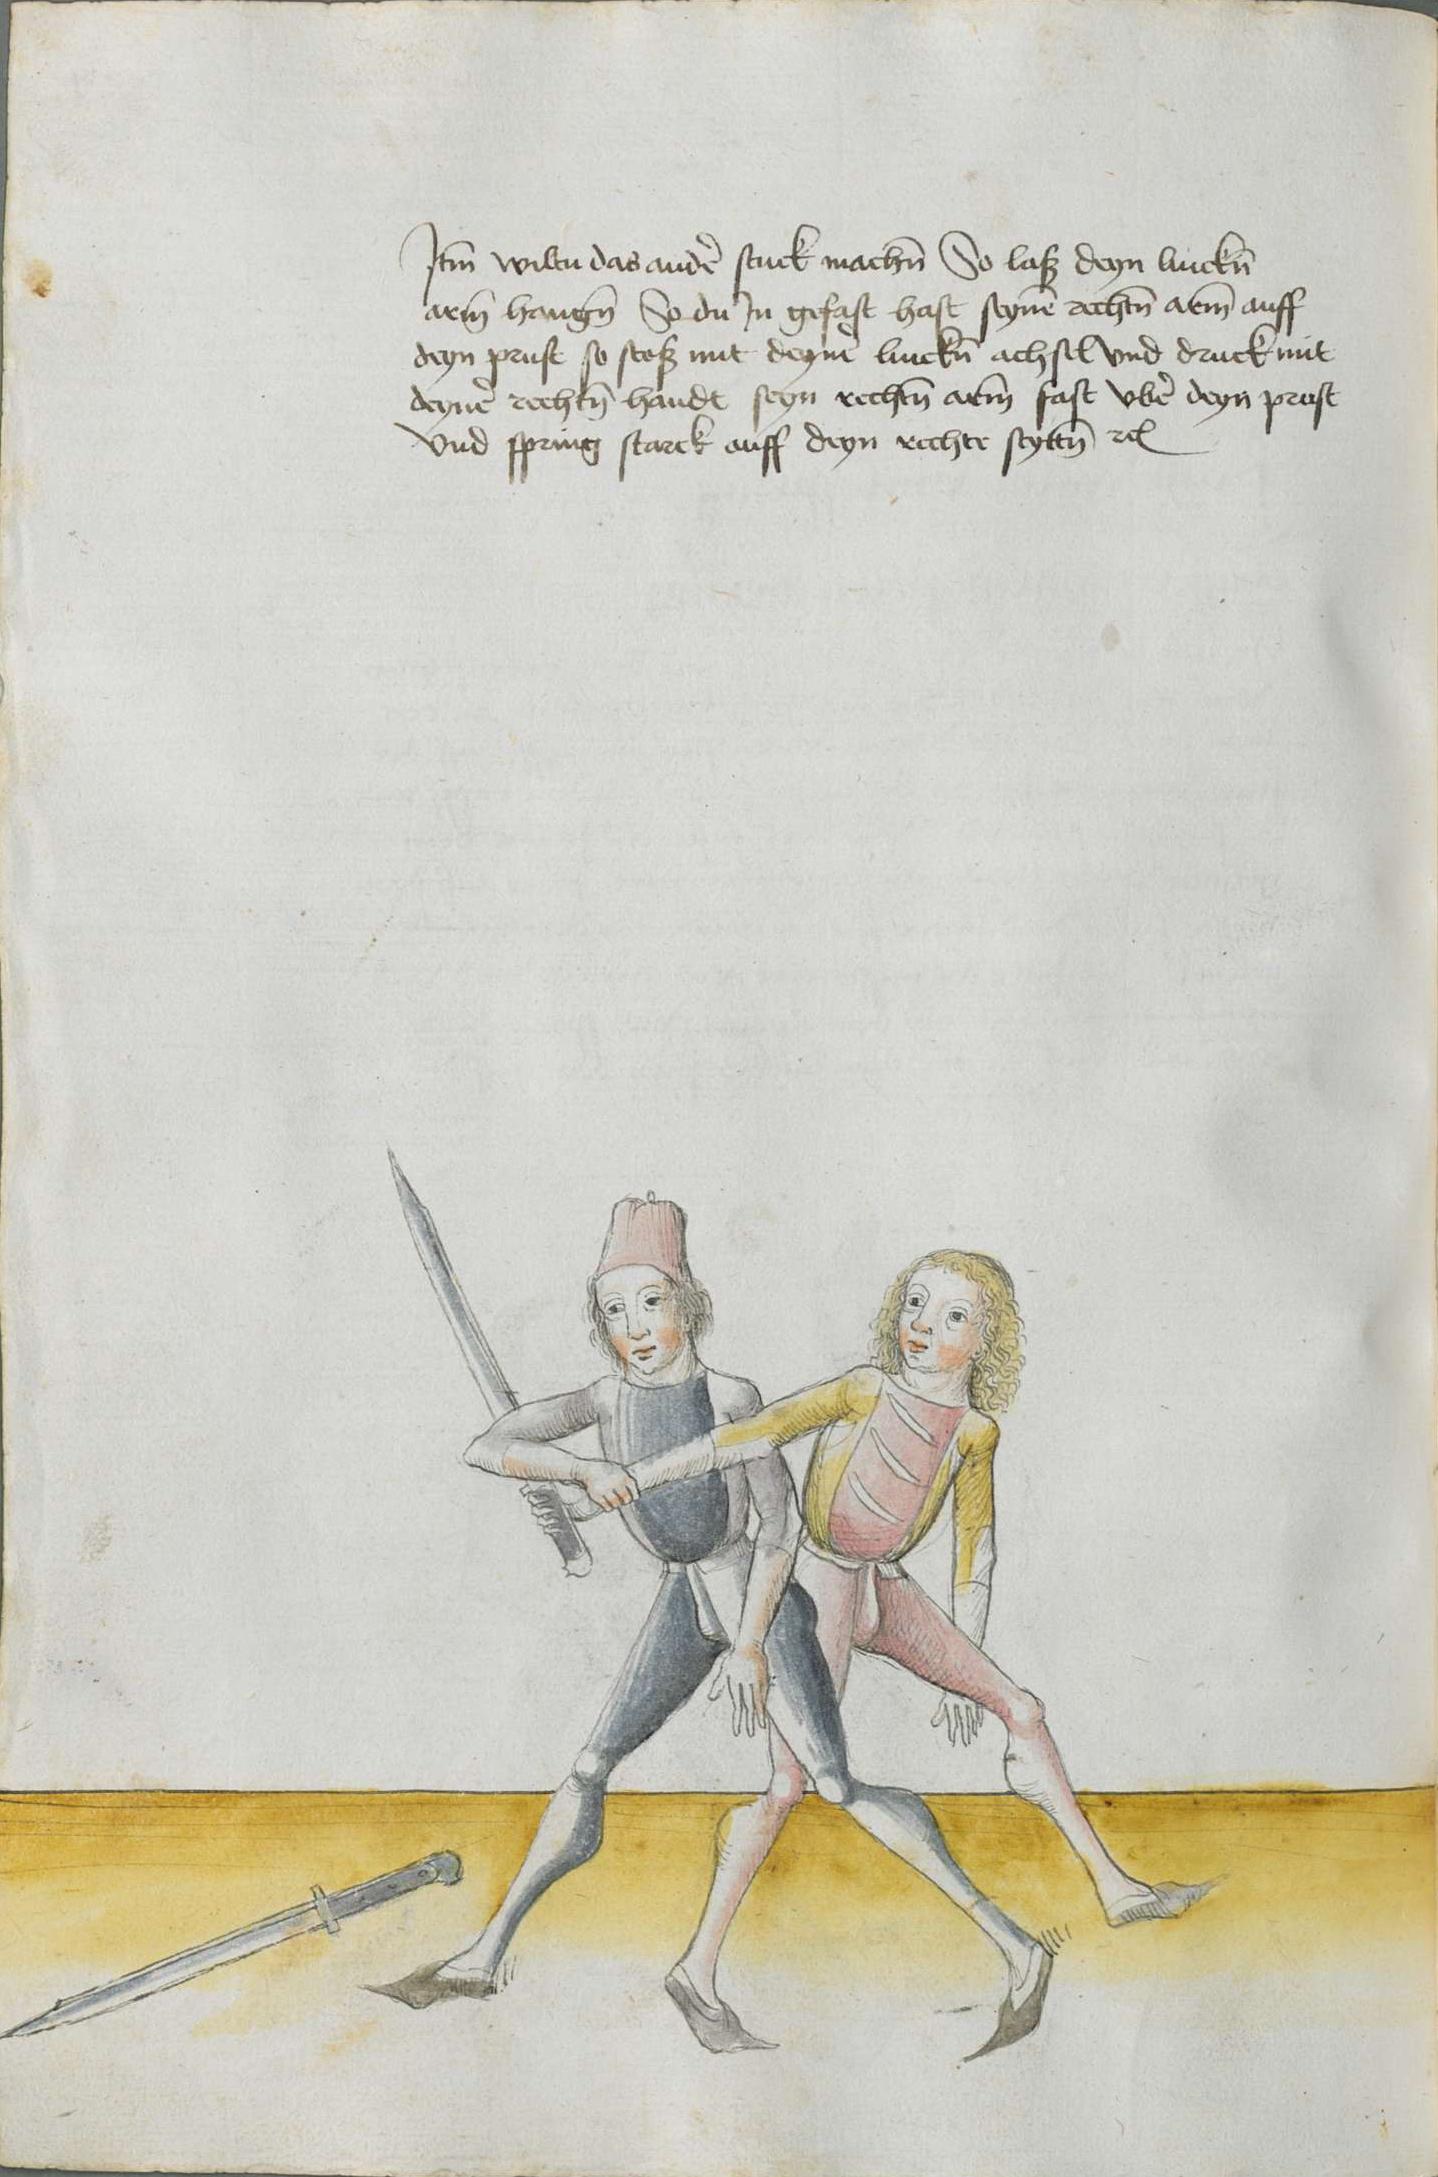 Jtm̄ wiltu das anderˉ stuck machn̄ So laß deyn linckn̄
arm̄ hangn̄ So du Jn gefast hast seynē rechtn̄ arm̄ auff
deyn prust so stoß mit deynerˉ linckn̄ achsel vnd druck mit
deynerˉ rechtn̄ handt seyn rechtn̄ arm̄ fast vberˉ deyn prust
vnd spring starck auff deyn rechte seyttn̄ rcͥ